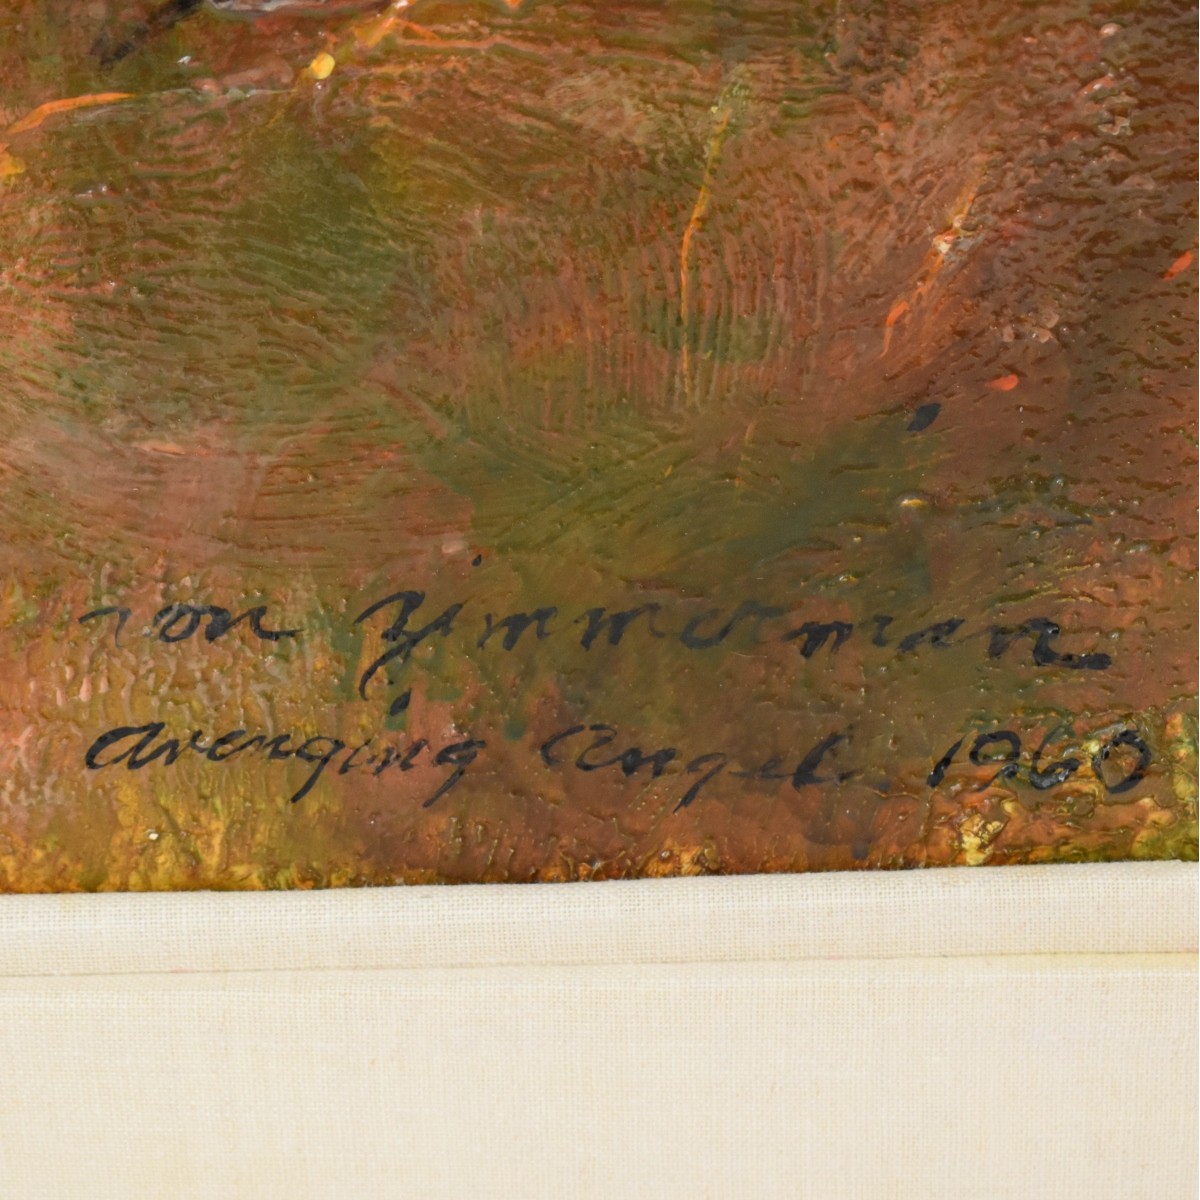 ron Zimmerman
Avenging Angel 1960